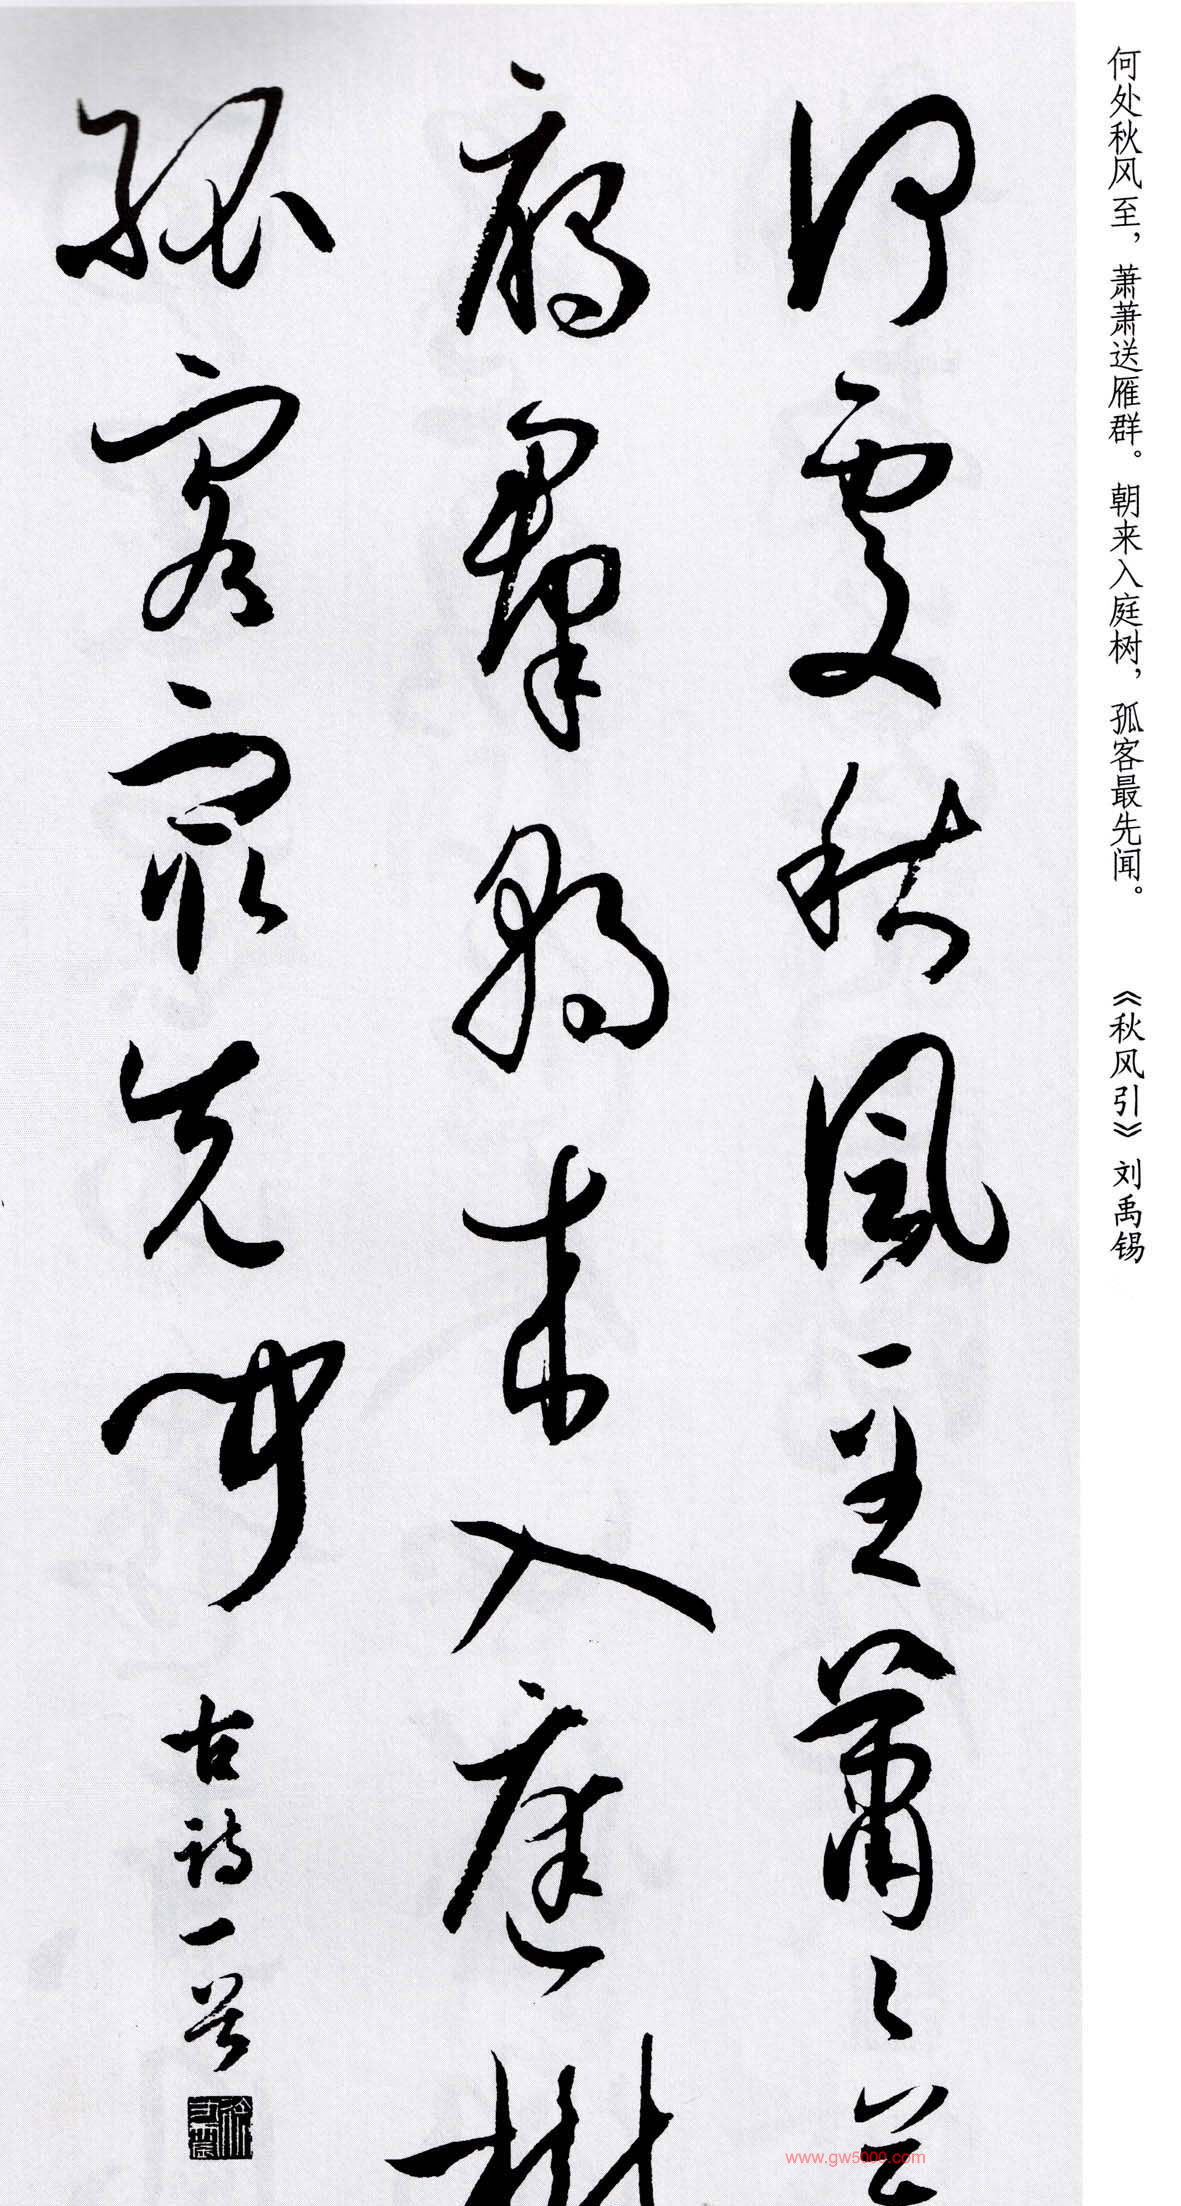 何处秋风至，萧萧送雁群。朝来入庭树，孤客最先闻。 《秋风引》刘禹锡
何處秋風至蕭々送
鴈羣朝来入庭樹
孤客冣先聞
古詩一首
www.gw5000.com